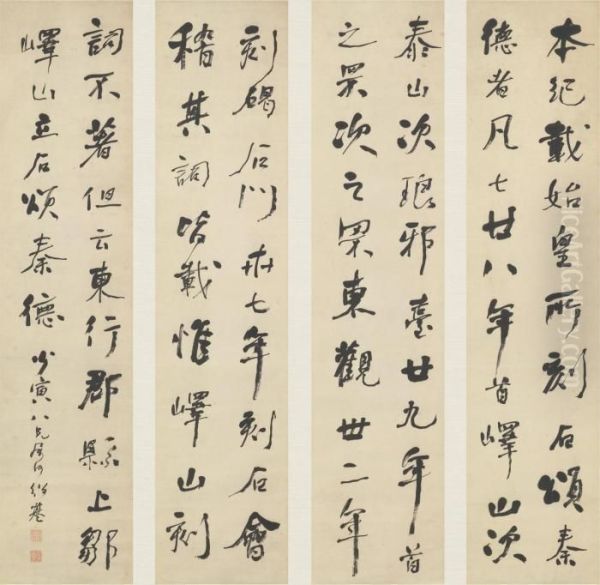 本紀載始皇所刻石頌秦
德者凡七廿八年首嶧山次
泰山次琅邪臺廿九年首
之罘次之罘東觀卅二年
刻碣石門卅七年刻石會
稽其詞皆載惟嶧山刻
詞不著但云東行郡縣上鄒
嶧山立石頌秦德
少寅八兄屬何紹基